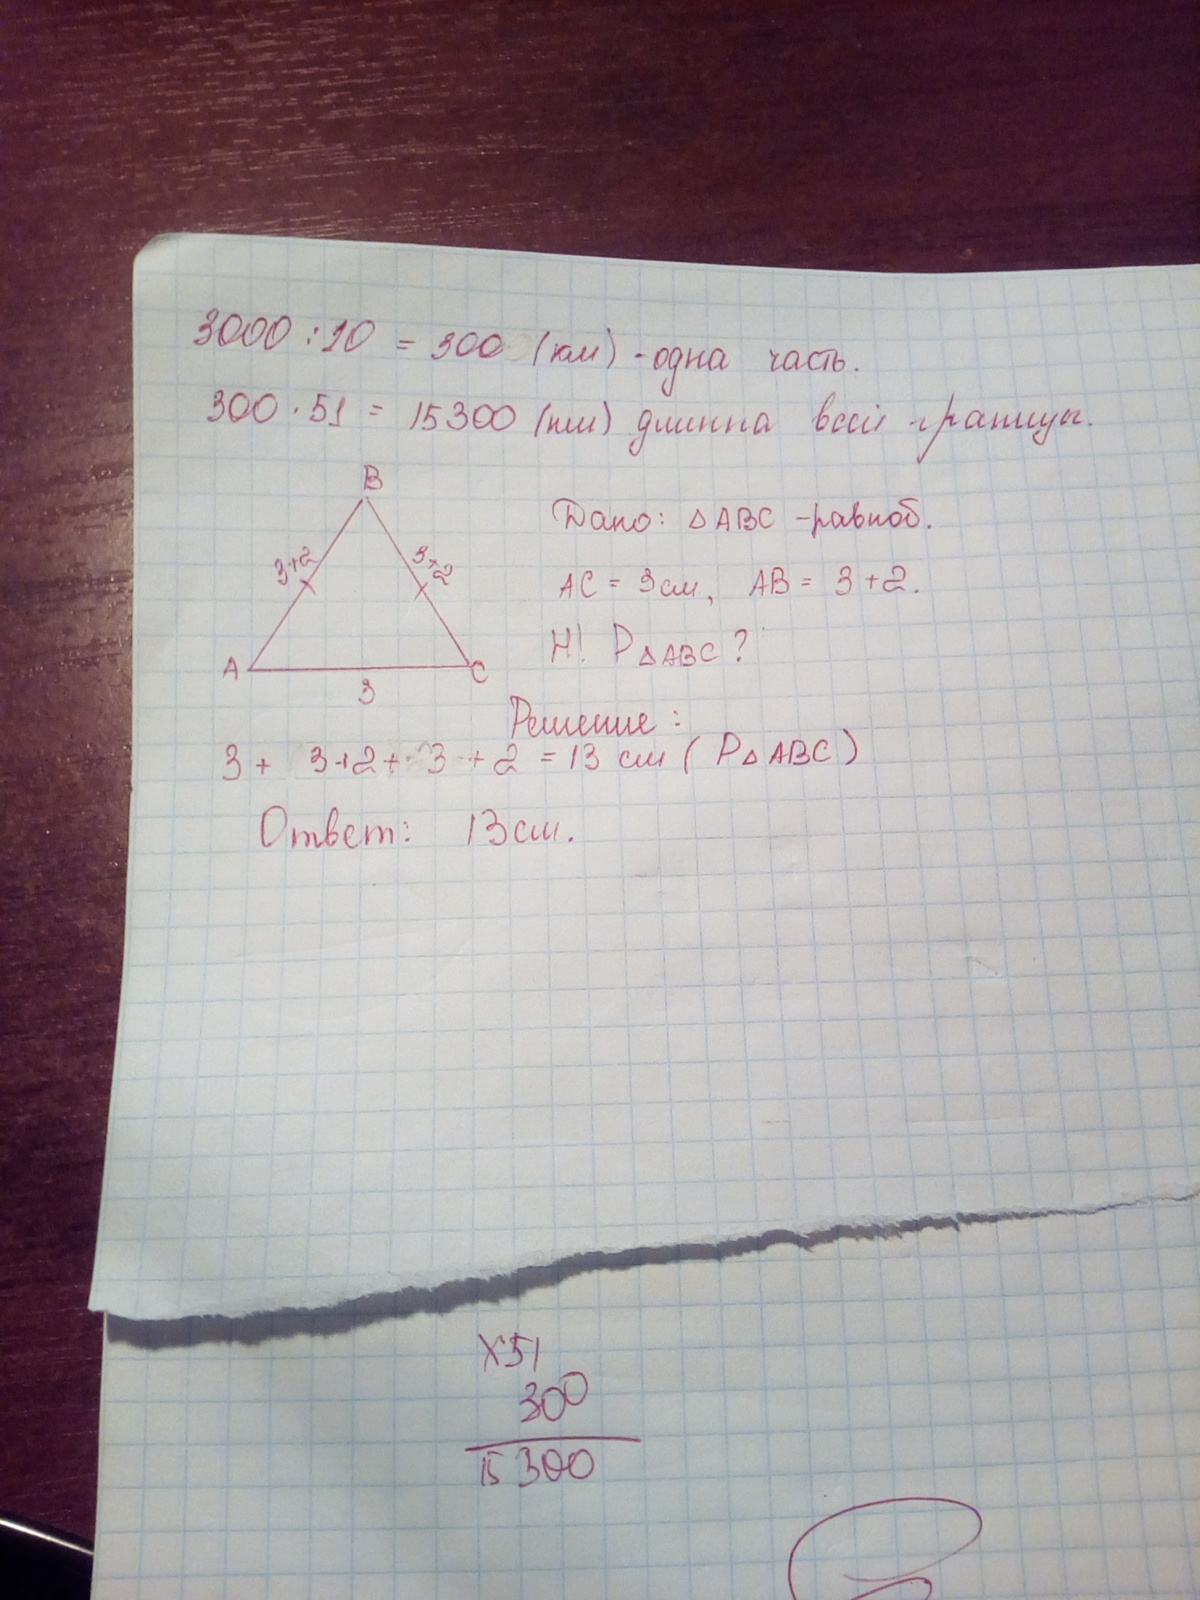 3000 : 10 = 300 (км) - одна часть.
300 · 51 = 15300 (км) длинна всей границы.
B
3+2
3+2
A
C
3
Дано: △ABC - равноб.
AC = 3см, AB = 3+2.
Н! P△ABC?
Решение:
3 + 3+2 + 3 + 2 = 13 см (P△ABC)
Ответ: 13см.
×51
300
15300